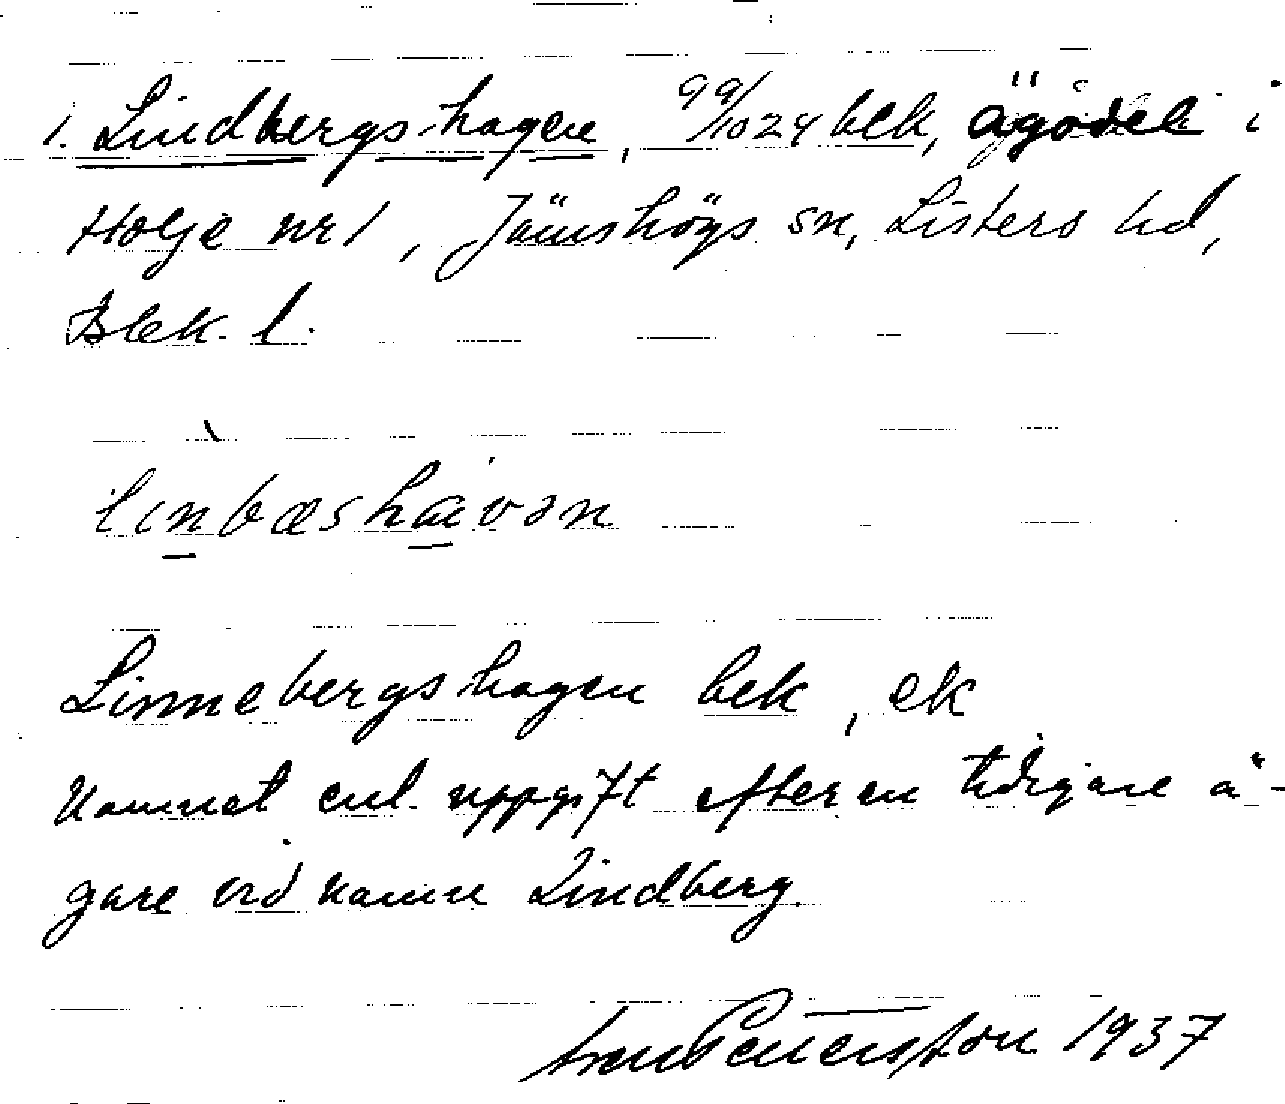 1. Lindbergshagen, 99/1024 bek, ägodel i
Holje nr 1, Jämshögs sn, Listers hd,
Blek. l.
linbæshavən
Linnebergshagen bek, ek
Namnet enl. uppgift efter en tidigare ä-
gare vid namn Lindberg.
1937